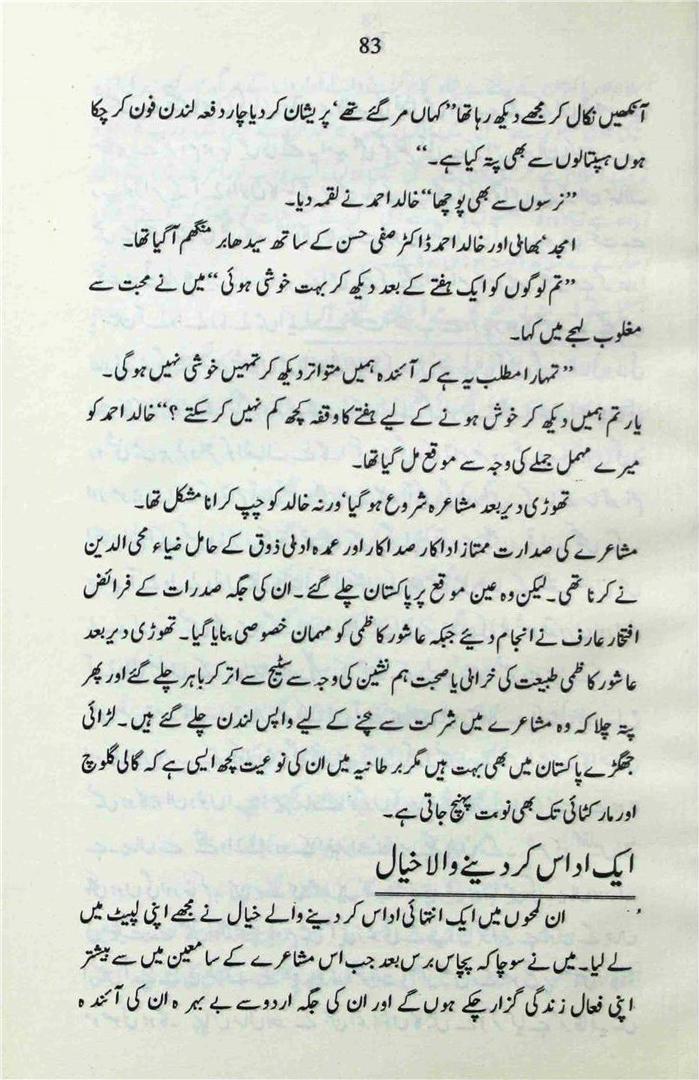 83
آنکھیں نکال کر مجھے دیکھ رہا تھا ’’کہاں مر گئے تھے‘ پریشان کر دیا چار دفعہ لندن فون کر چکا
ہوں ہسپتالوں سے بھی پتہ کیا ہے۔‘‘
’’نرسوں سے بھی پوچھا‘‘ خالد احمد نے لقمہ دیا۔
امجد‘ بھابی اور خالد احمد ڈاکٹر صفی حسن کے ساتھ سیدھا برمنگھم آ گیا تھا۔
’’تم لوگوں کو ایک ہفتے کے بعد دیکھ کر بہت خوشی ہوئی‘‘ میں نے محبت سے
مغلوب لہجے میں کہا۔
’’تمہارا مطلب یہ ہے کہ آئندہ ہمیں متواتر دیکھ کر تمہیں خوشی نہیں ہو گی۔
یار تم ہمیں دیکھ کر خوش ہونے کے لیے ہفتے کا وقفہ کچھ کم نہیں کر سکتے؟‘‘ خالد احمد کو
میرے مہمل جملے کی وجہ سے موقع مل گیا تھا۔
تھوڑی دیر بعد مشاعرہ شروع ہو گیا‘ ورنہ خالد کو چپ کرانا مشکل تھا۔
مشاعرے کی صدارت ممتاز اداکار صداکار اور عمدہ ادبی ذوق کے حامل ضیاء محی الدین
نے کرنا تھی۔ لیکن وہ عین موقع پر پاکستان چلے گئے۔ ان کی جگہ صدرات کے فرائض
افتخار عارف نے انجام دیئے جبکہ عاشور کاظمی کو مہمان خصوصی بنایا گیا۔ تھوڑی دیر بعد
عاشور کاظمی طبیعت کی خرابی یا صحبت ہم نشین کی وجہ سے سٹیج سے اتر کر باہر چلے گئے اور پھر
پتہ چلا کہ وہ مشاعرے میں شرکت سے بچنے کے لیے واپس لندن چلے گئے ہیں۔ لڑائی
جھگڑے پاکستان میں بھی بہت ہیں مگر برطانیہ میں ان کی نوعیت کچھ ایسی ہے کہ گالی گلوچ
اور مار کٹائی تک بھی نوبت پہنچ جاتی ہے۔
ایک اداس کر دینے والا خیال
ان لمحوں میں ایک انتہائی اداس کر دینے والے خیال نے مجھے اپنی لپیٹ میں
لے لیا۔ میں نے سوچا کہ پچاس برس بعد جب اس مشاعرے کے سامعین میں سے بیشتر
اپنی فعال زندگی گزار چکے ہوں گے اور ان کی جگہ اردو سے بے بہرہ ان کی آئندہ